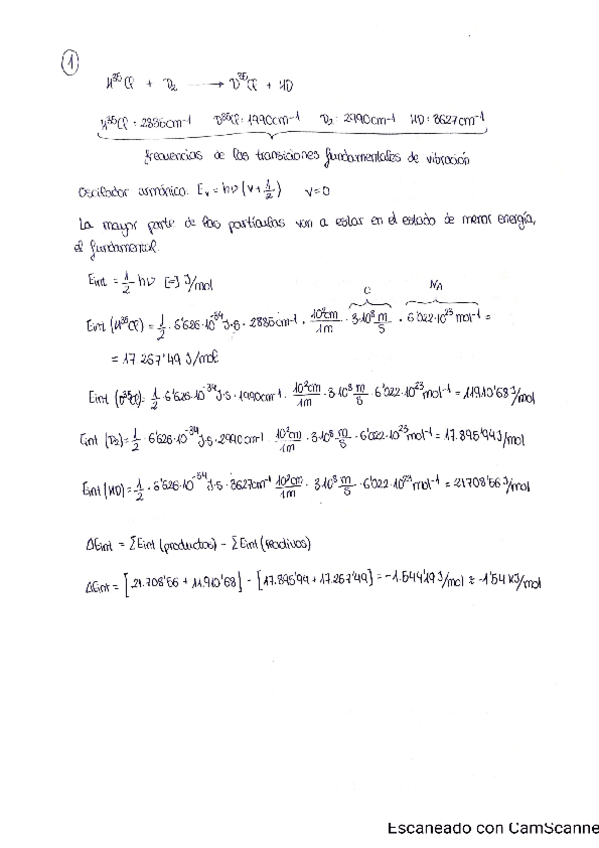 1
H³⁵Cl + D₂ → D³⁵Cl + HD
H³⁵Cl: 2885cm⁻¹ D³⁵Cl: 1990cm⁻¹ D₂: 2990cm⁻¹ HD: 3627cm⁻¹
frecuencias de las transiciones fundamentales de vibración
Oscilador armónico. Eᵥ = hν(v+1/2) v=0
La mayor parte de las partículas van a estar en el estado de menor energía,
el fundamental.
Eint = 1/2 hν [=] J/mol
C NA
Eint (H³⁵Cl) = 1/2 · 6'626·10⁻³⁴ J·s · 2885cm⁻¹ · 10²cm/1m · 3·10⁸ m/s · 6'022·10²³ mol⁻¹ =
= 17.267'49 J/mol
Eint (D³⁵Cl) = 1/2 · 6'626·10⁻³⁴ J·s · 1990cm⁻¹ · 10²cm/1m · 3·10⁸ m/s · 6'022·10²³ mol⁻¹ = 11910'68 J/mol
Eint (D₂) = 1/2 · 6'626·10⁻³⁴ J·s · 2990cm⁻¹ · 10²cm/1m · 3·10⁸ m/s · 6'022·10²³ mol⁻¹ = 17.895'94 J/mol
Eint (HD) = 1/2 · 6'626·10⁻³⁴ J·s · 3627cm⁻¹ · 10²cm/1m · 3·10⁸ m/s · 6'022·10²³ mol⁻¹ = 21708'56 J/mol
ΔEint = ΣEint (productos) - ΣEint (reactivos)
ΔEint = [21.708'56 + 11.910'68] - [17.895'94 + 17.267'49] = -1.544'19 J/mol ≈ -1'54 KJ/mol
Escaneado con CamScanne